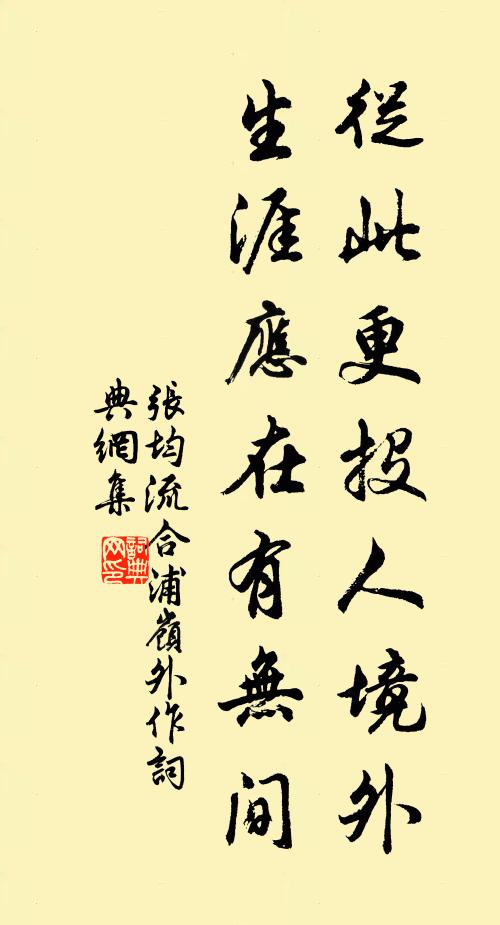 從此更投人境外
生涯應在有無間
張均流合浦嶺外作詞
典網集
詞典
网印